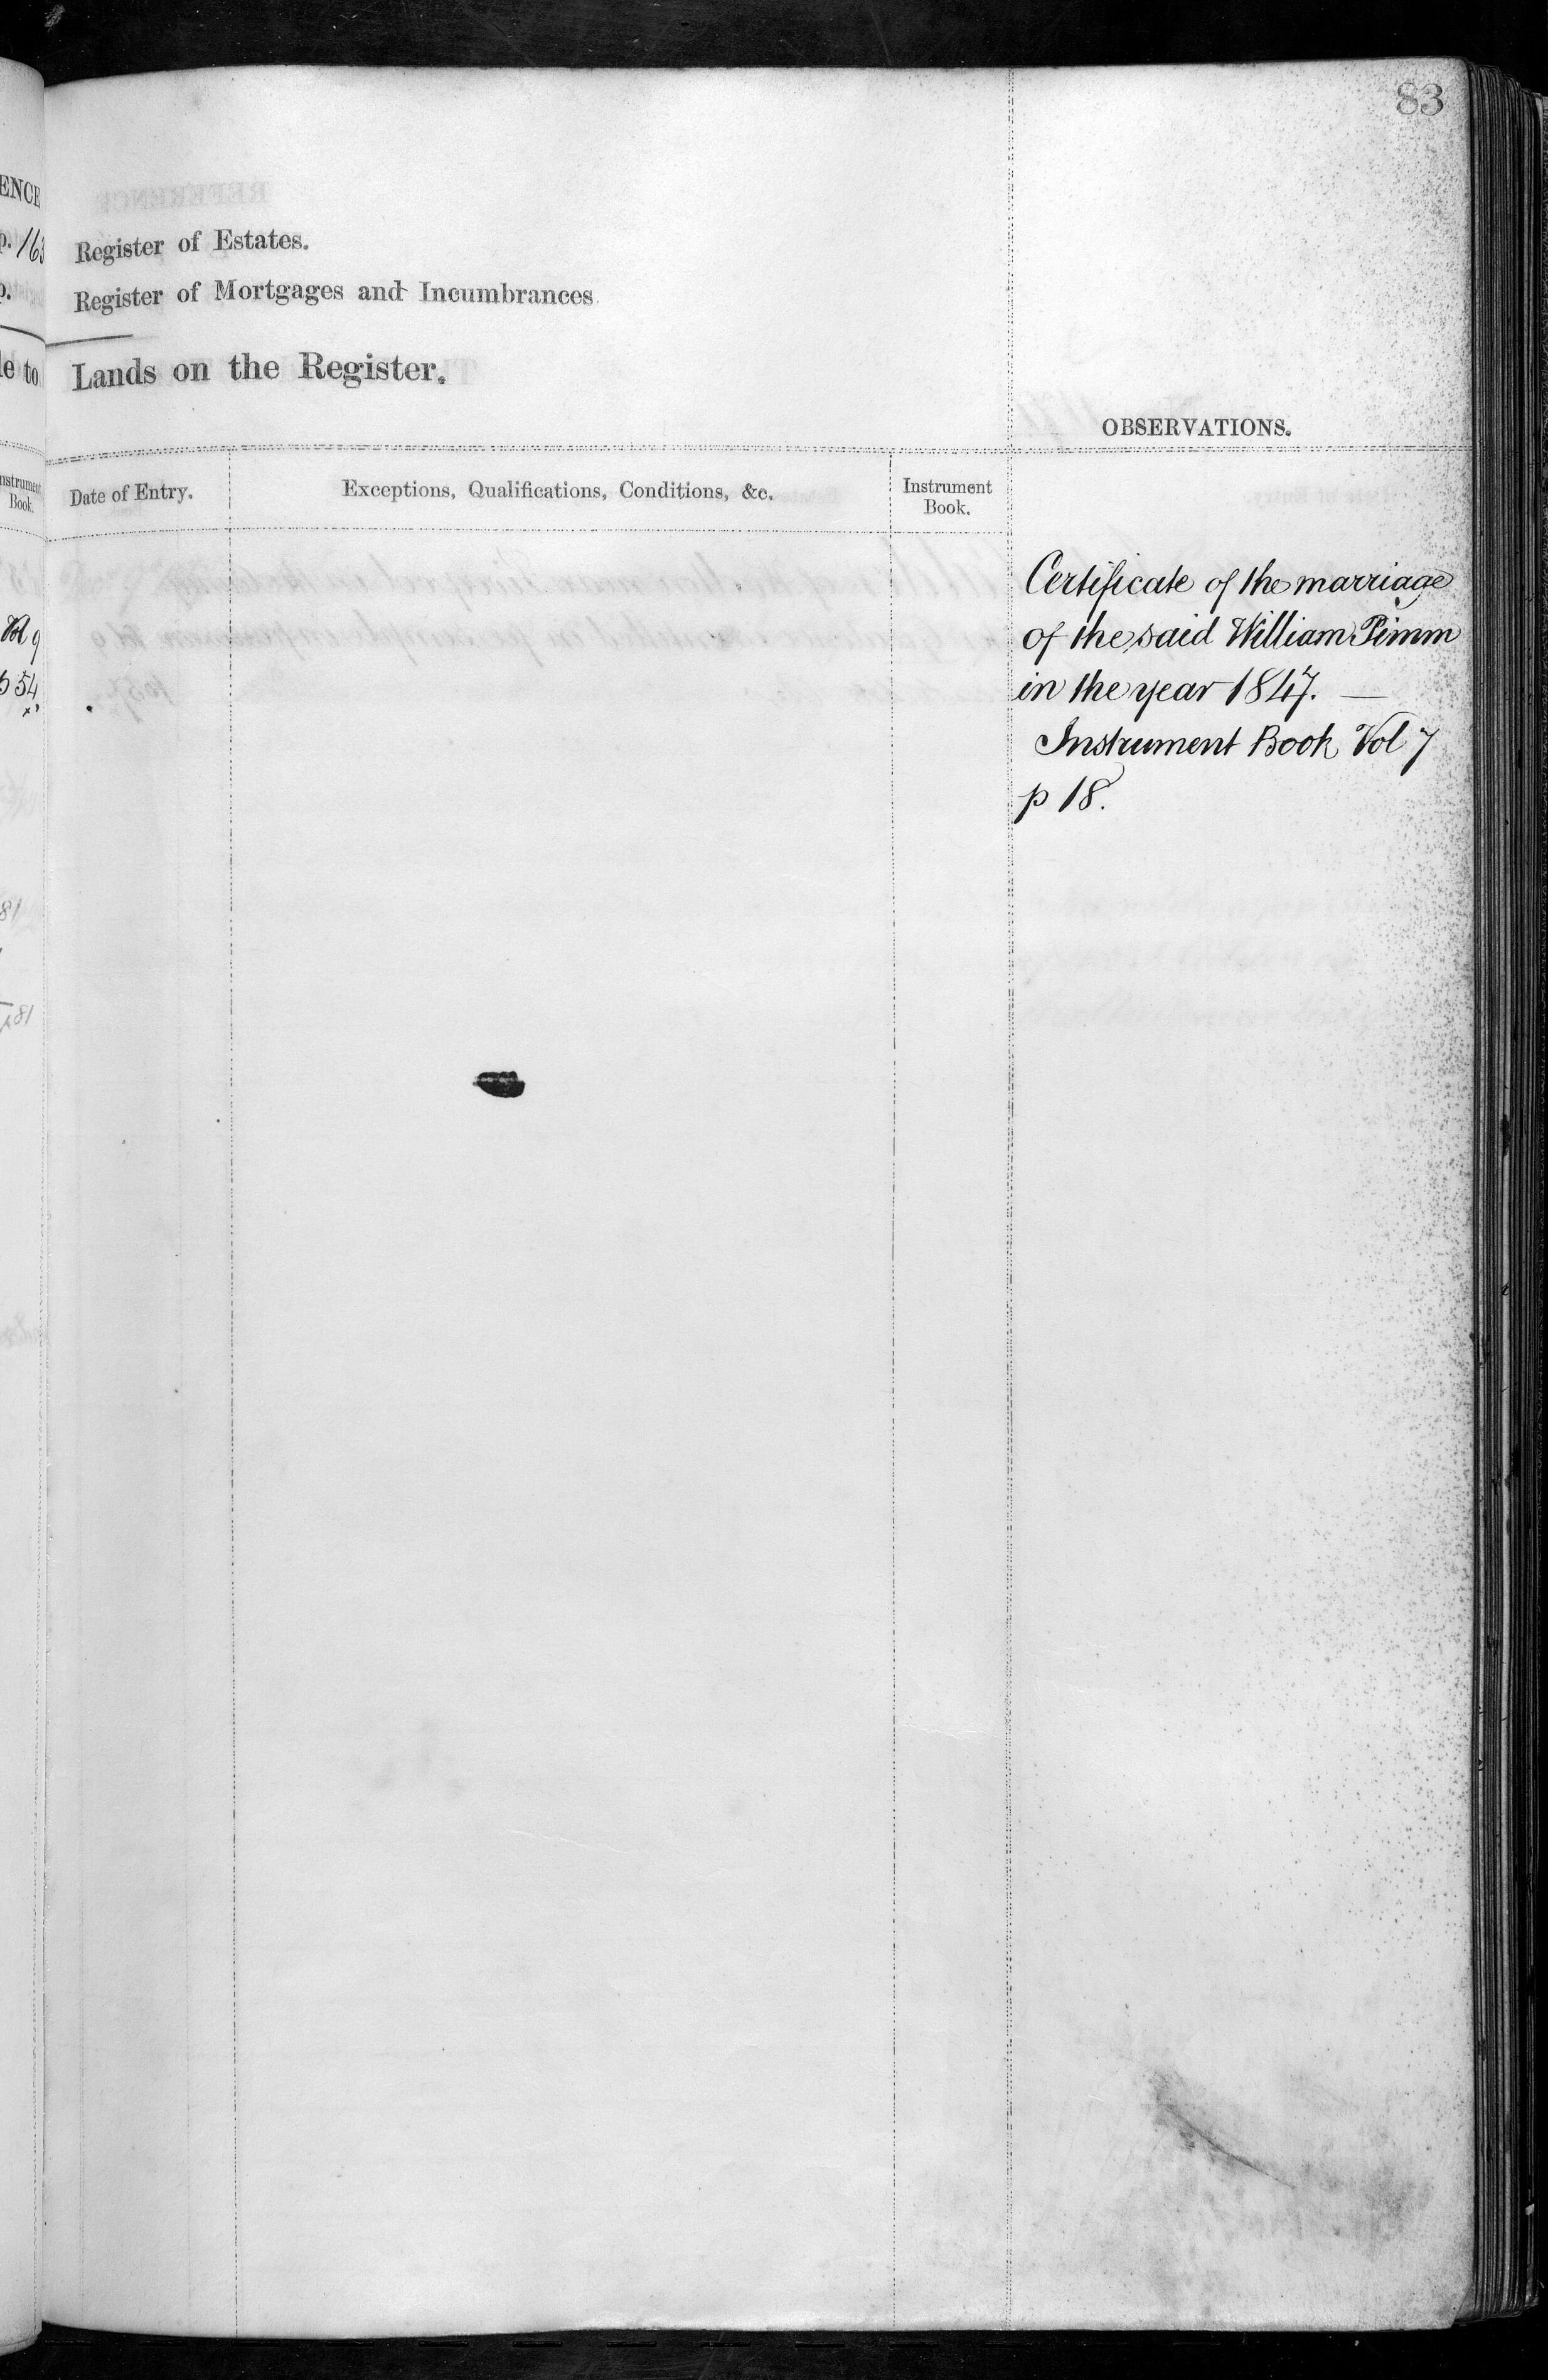 83
ENCE
p. 163
Register of Estates.
p.
Register of Mortgages and Incumbrances
le to
Lands on the Register.
OBSERVATIONS.
Instrument
Book.
Date of Entry.
Exceptions, Qualifications, Conditions, &c.
Instrument
Book.
Vol 9
p 54
Certificate of the marriage
of the said William Pimm
in the year 1847. —
Instrument Book Vol 7
p 18.
81
p81